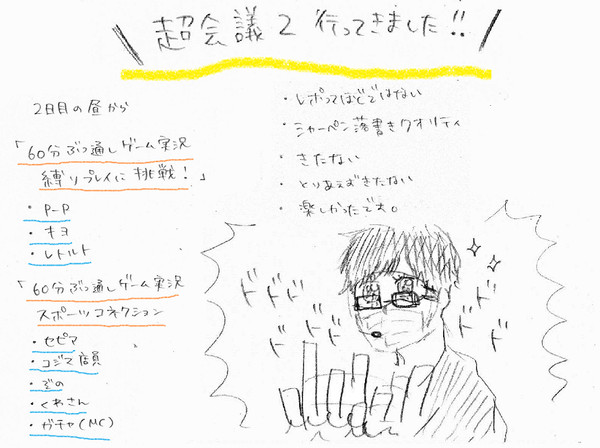 \ 超会議2 行ってきました!! /
2日目の昼から
「60分ぶっ通しゲーム実況
縛りプレイに挑戦!」
・P-P
・キヨ
・レトルト
「60分ぶっ通しゲーム実況
スポーツコネクション
・セピア
・コジマ店員
・ぞの
・くわさん
・ガチャ(MC)
・レポってほどではない
・シャーペン落書きクオリティ
・きたない
・とりあえずきたない
・楽しかったです。
ドドド
ドド
ドド
ド